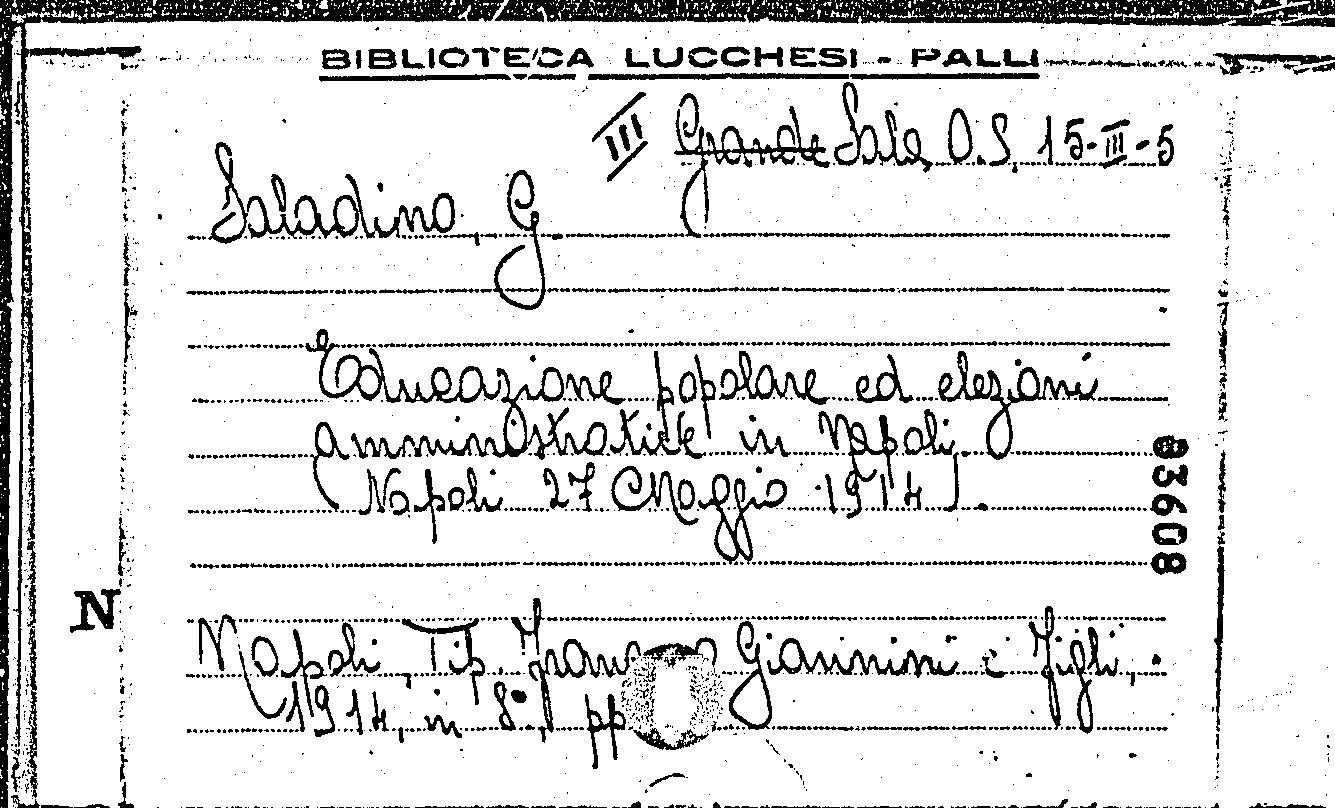 BIBLIOTECA LUCCHESI - PALLI
III Grande Sala O.S. 15-III-5
Saladino, G.
Educazione popolare ed elezioni
amministrative in Napoli.
(Napoli 27 Maggio 1914).
83608
N
Napoli, Tip. Giannini e Figli,
1914, in 8°, pp